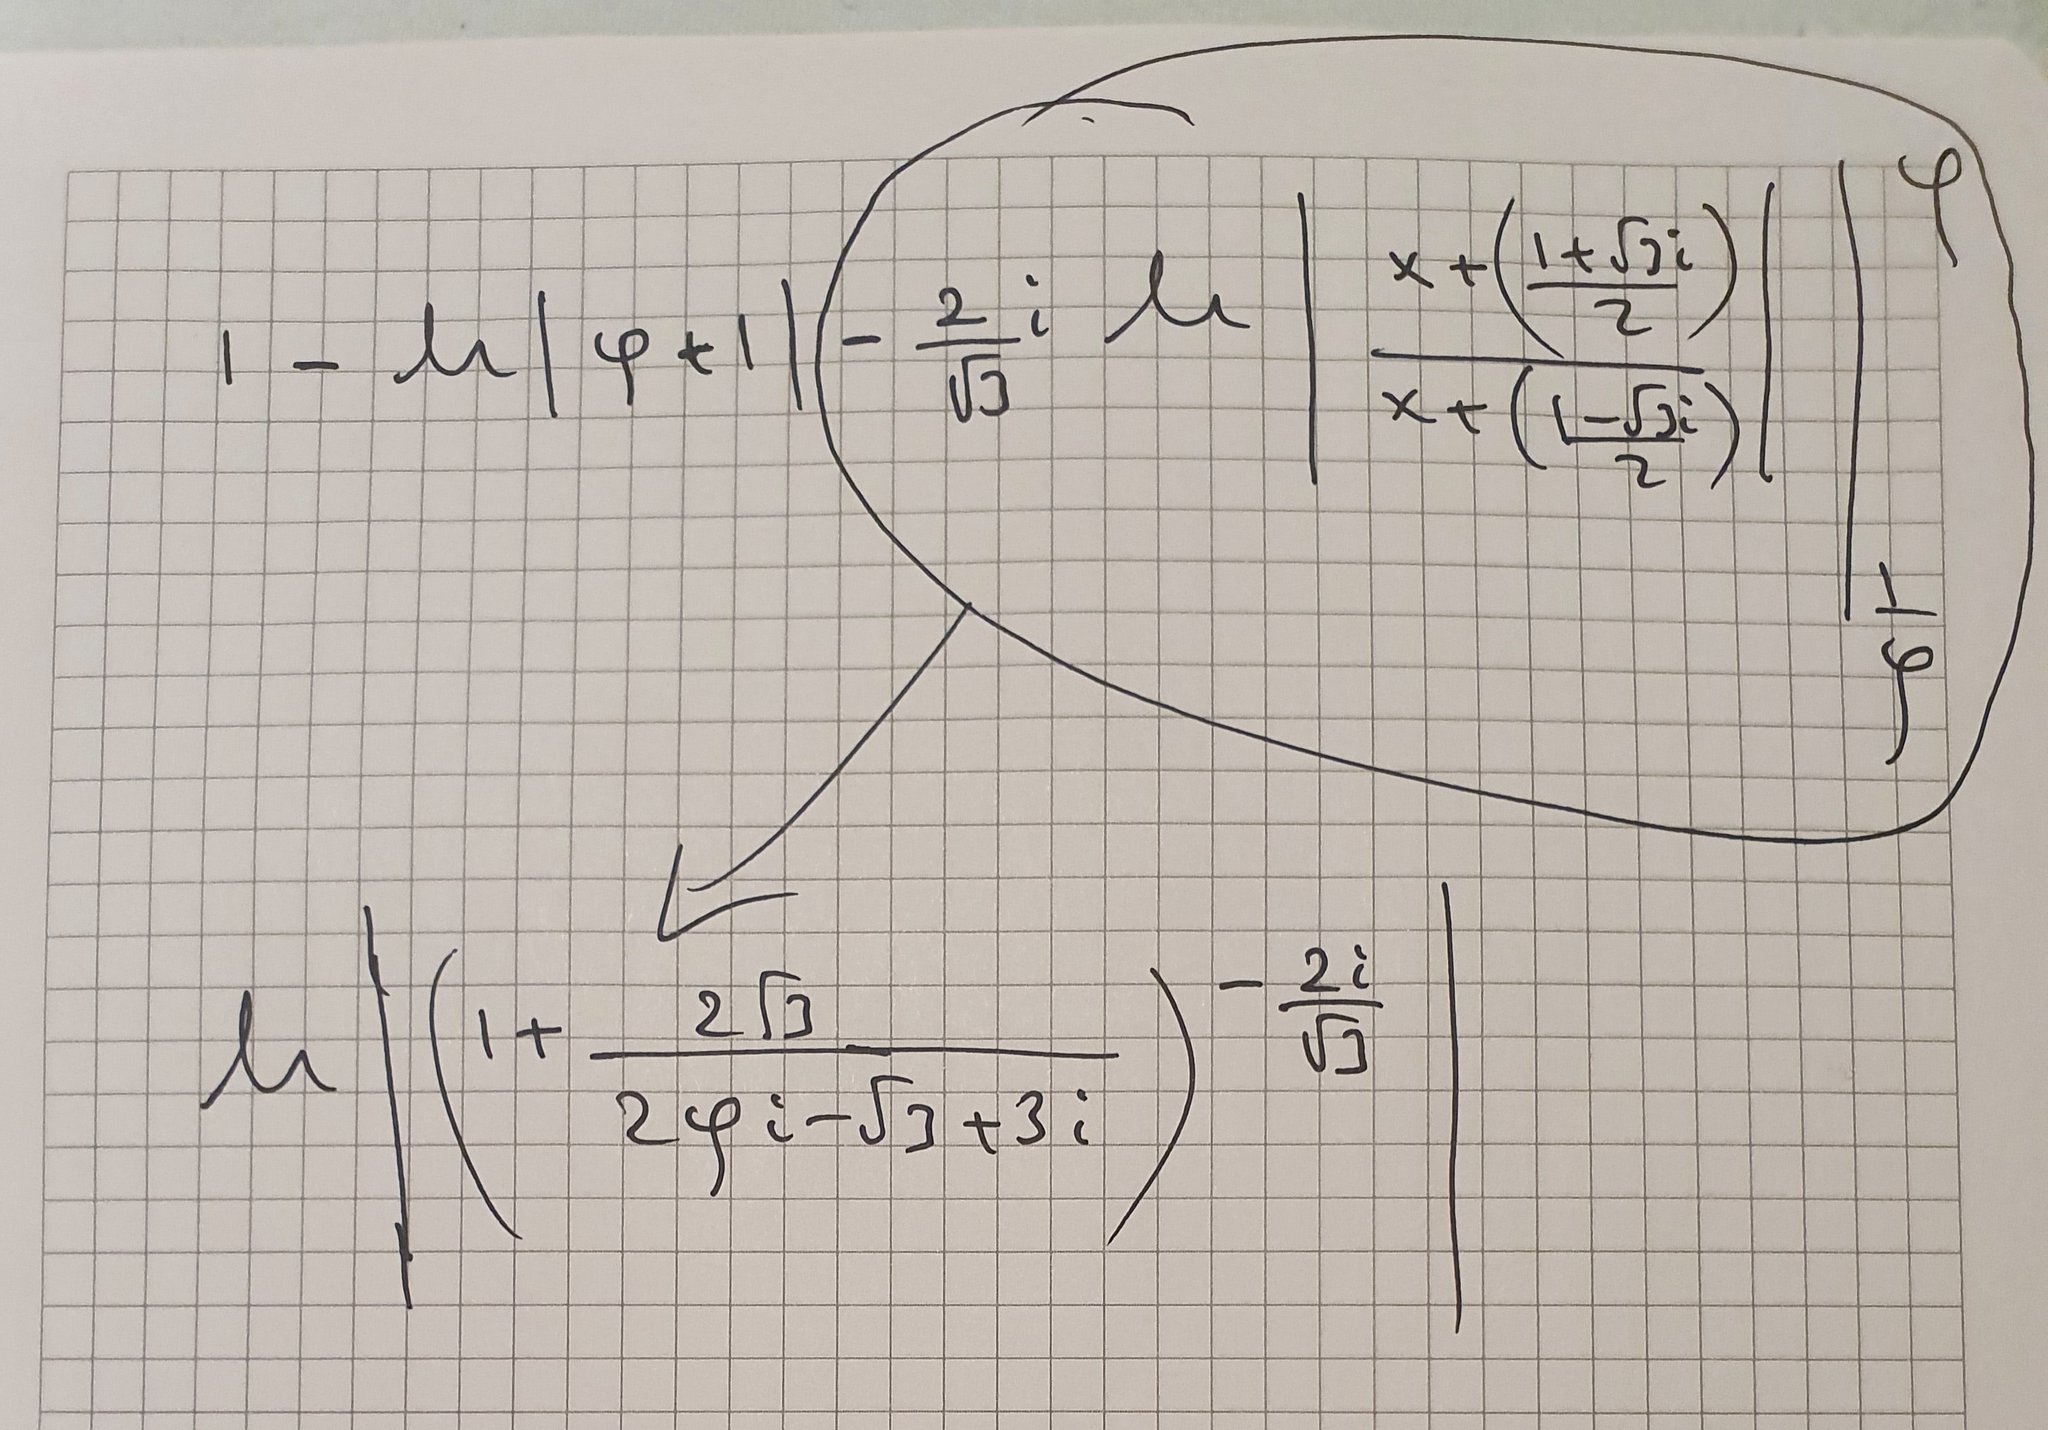 1 - ln|φ+1| - \frac{2}{√3} i ln | \frac{x + (\frac{1+√3i}{2})}{x + (\frac{1-√3i}{2})} | |_{\frac{1}{φ}}^{φ}
ln | (1 + \frac{2√3}{2φi - √3 + 3i})^{-\frac{2i}{√3}} |